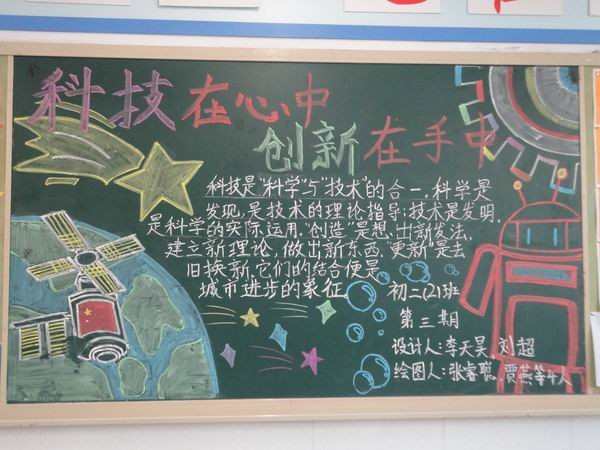 科技在心中
创新在手中
科技是"科学"与"技术"的合一.科学是
发现,是技术的理论指导;技术是发明.
是科学的实际运用."创造"是想.出新发法.
建立新理论,做出新东西."更新"是去
旧换新.它们的结合便是
城市进步的象征.
初二(2)班
第三期
设计人:李天昊.刘超
绘图人:张睿聪.贾燕等4人